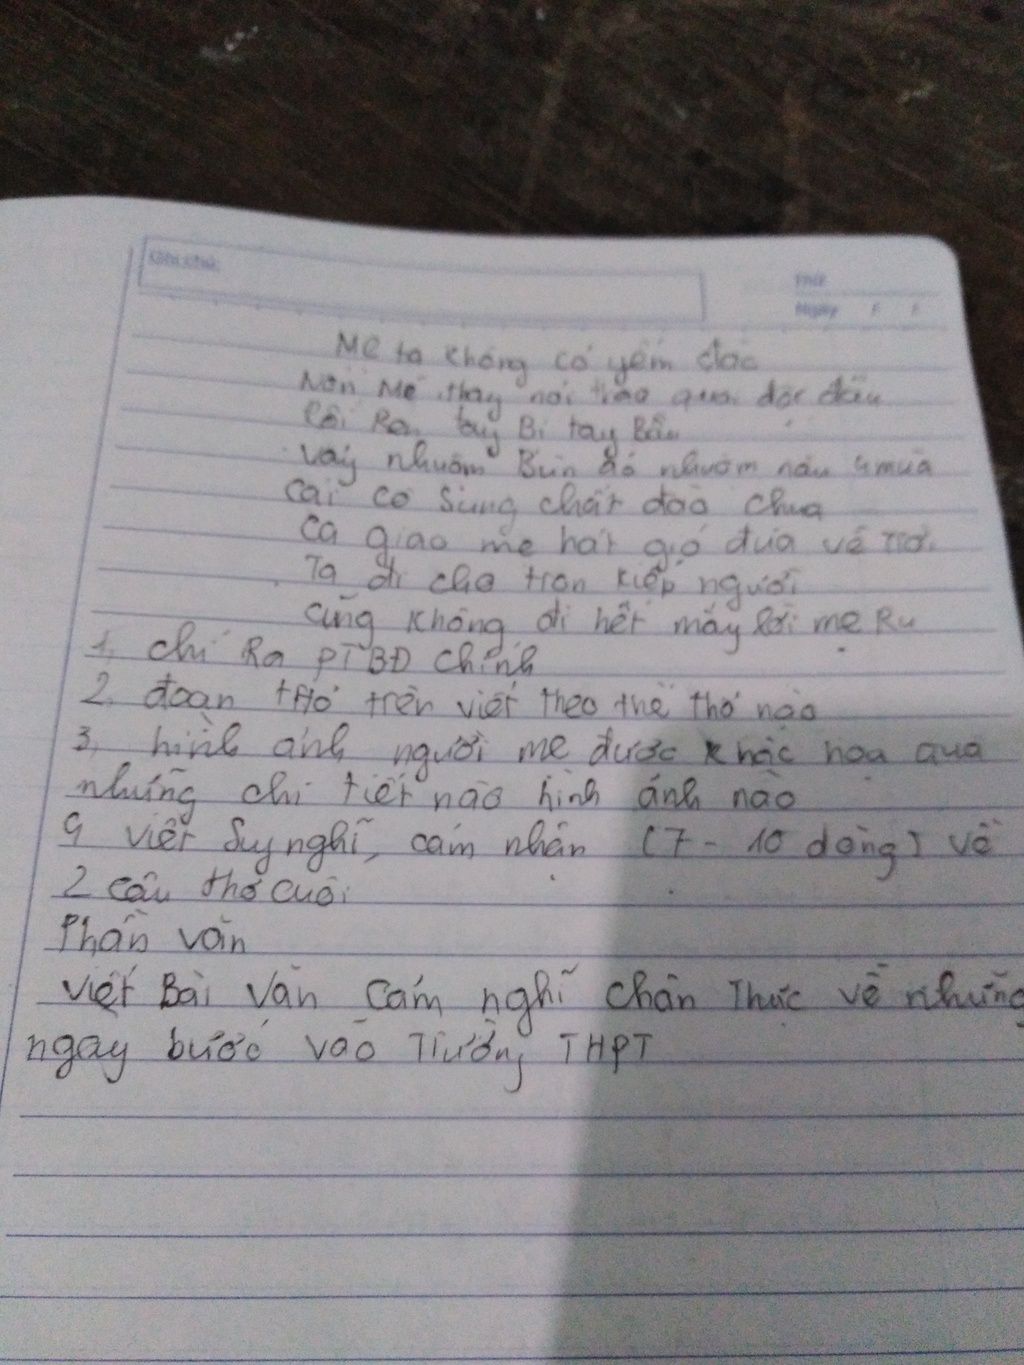 Ghi chú:
Thứ
Ngày / /
Mẹ ta không có yếm đào
Nón mê thay nón thao quai đội đầu
Rối Ra tay Bí tay Bầu
Váy nhuộm Bùn áo nhuộm nâu 4 mùa
Cái cò Sung chát đào chua
Ca giao mẹ hát gió đưa về trời
Ta đi chọ trọn kiếp người
Cũng không đi hết mấy lời mẹ Ru
1, chỉ Ra PTBĐ chính
2, đoạn thơ trên viết theo thể thơ nào
3, hình ảnh người mẹ được khắc họa qua
những chi tiết nào hình ảnh nào
4 viết Suy nghĩ, cảm nhận (7 - 10 dòng) về
2 câu thơ cuối
Phần văn
Viết Bài Văn Cảm nghĩ chân Thực về những
ngày bước vào Trường THPT